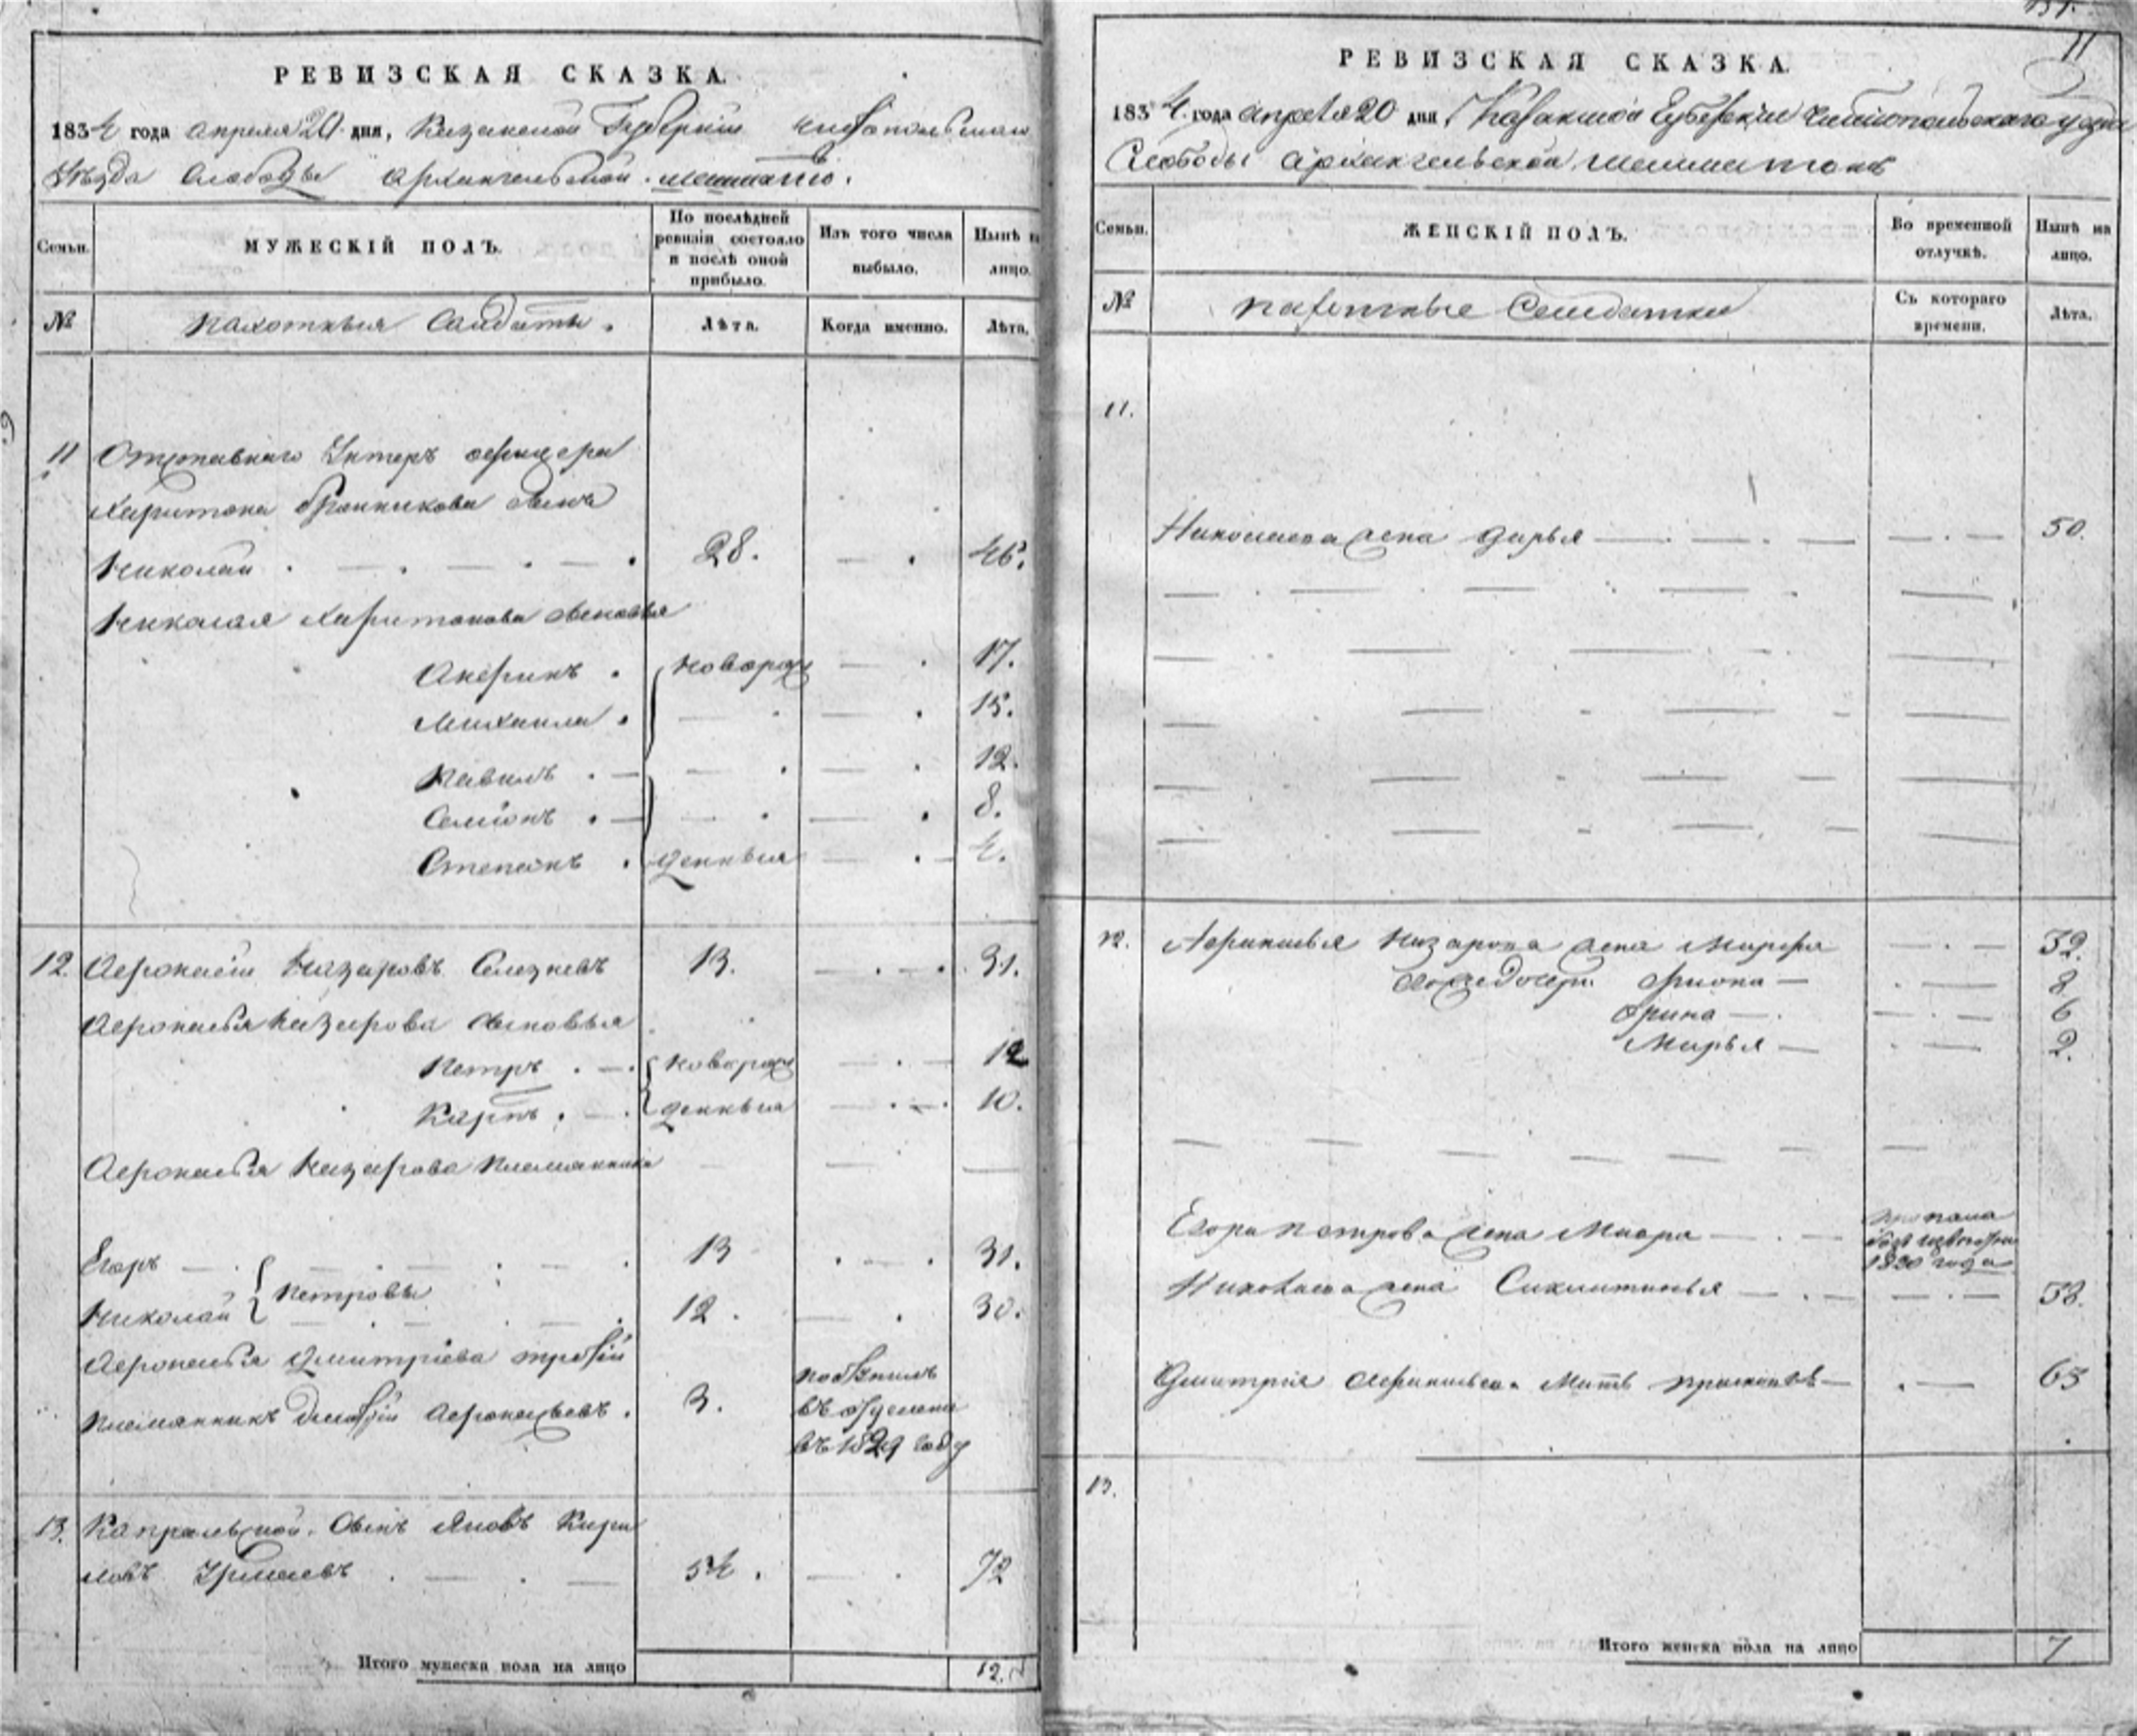 РЕВИЗСКАЯ СКАЗКА.
1834 года апреля 20 дня, Казанской Губернии Чистопольскаго
Уѣзда слободы Архангельской
Семьи. МУЖЕСКІЙ ПОЛЪ. По послѣдней ревизіи состояло и послѣ оной прибыло. Изъ того числа выбыло. Нынѣ на лицо.
№ пахотныя Салдаты. Лѣта. Когда именно. Лѣта.
11 Отставнаго Унтеръ офицера
Харитона сынъ
Николай 28. 46.
Николая Харитонова сыновья
новорож 17.
Михаила 15.
Павилъ 12.
Семіонъ 8.
Степанъ денныя 4.
12. Афонасіи Назаровъ Селезневъ 13. 31.
Афонасья Назарова сыновья
Петръ новорож 12
Карпъ денныя 10.
Афонасья Назарова племянники
Егоръ 13 31.
Петровы
Николай 12. 30.
Афонасья Дмитріева третій
племянникъ Афонасьевъ. 3.
въ 1829 году
13. Капральской сынъ Яковъ Кири
ловъ 54. 72
Итого мужеска пола на лицо 12.
11
РЕВИЗСКАЯ СКАЗКА.
1834 года апреля 20 дня Казанской Губернии Чистопольскаго уезда
Слободы Архангельской
Семьи. ЖЕНСКІЙ ПОЛЪ. Во временной отлучкѣ. Нынѣ на лицо.
№ пахотные Салдатки Съ котораго времени. Лѣта.
11.
Николаева жена Дарья 50.
12. Афанасья Назарова жена Марфа 32.
8
Орина 6
Марья 2.
Егора Петрова жена Мавра пропала
безъ извѣстно
1830 года
Николаева жена 38.
Дмитрія Афанасьева Мать 65
13.
Итого женска пола на лицо 7